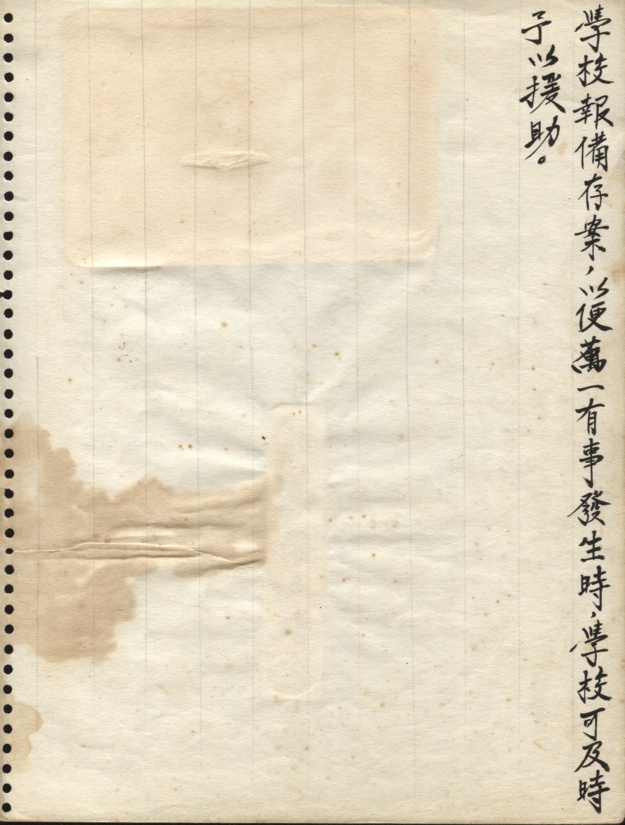 學校報備存案，以便萬一有事發生時，學校可及時
予以援助。